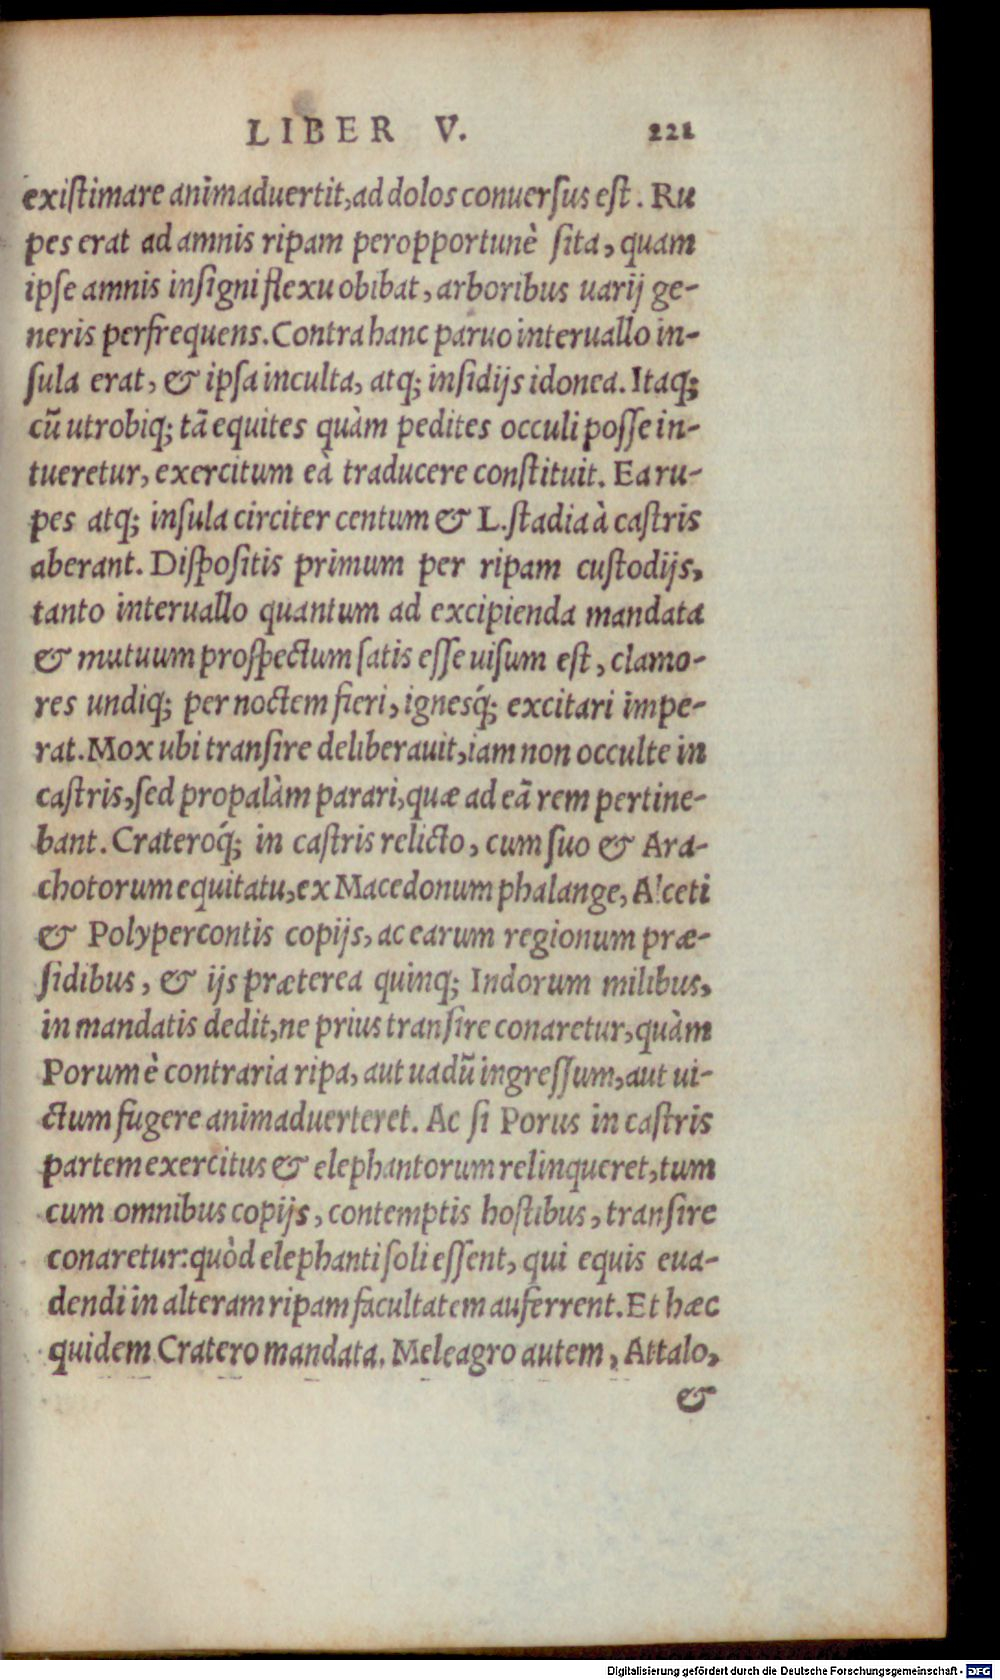 LIBER V. 221
existimare animaduertit, ad dolos conuersus est. Ru
pes erat ad amnis ripam peropportunè sita, quam
ipse amnis insigni flexu obibat, arboribus uarij ge-
neris perfrequens. Contra hanc paruo interuallo in-
sula erat, & ipsa inculta, atq; insidijs idonea. Itaq;
cũ utrobiq; tã equites quàm pedites occuli posse in-
tueretur, exercitum eà traducere constituit. Ea ru-
pes atq; insula circiter centum & L. stadia à castris
aberant. Dispositis primum per ripam custodijs,
tanto interuallo quantum ad excipienda mandata
& mutuum prospectum satis esse uisum est, clamo-
res undiq; per noctem fieri, ignesq́; excitari impe-
rat. Mox ubi transire deliberauit, iam non occulte in
castris, sed propalàm parari, quæ ad eã rem pertine-
bant. Crateroq́; in castris relicto, cum suo & Ara-
chotorum equitatu, ex Macedonum phalange, Alceti
& Polypercontis copijs, ac earum regionum præ-
sidibus, & ijs præterea quinq; Indorum milibus,
in mandatis dedit, ne prius transire conaretur, quàm
Porum è contraria ripa, aut uadũ ingressum, aut ui-
ctum fugere animaduerteret. Ac si Porus in castris
partem exercitus & elephantorum relinqueret, tum
cum omnibus copijs, contemptis hostibus, transire
conaretur: quòd elephanti soli essent, qui equis eua-
dendi in alteram ripam facultatem auferrent. Et hæc
quidem Cratero mandata. Meleagro autem, Attalo,
&
Digitalisierung gefördert durch die Deutsche Forschungsgemeinschaft - DFG